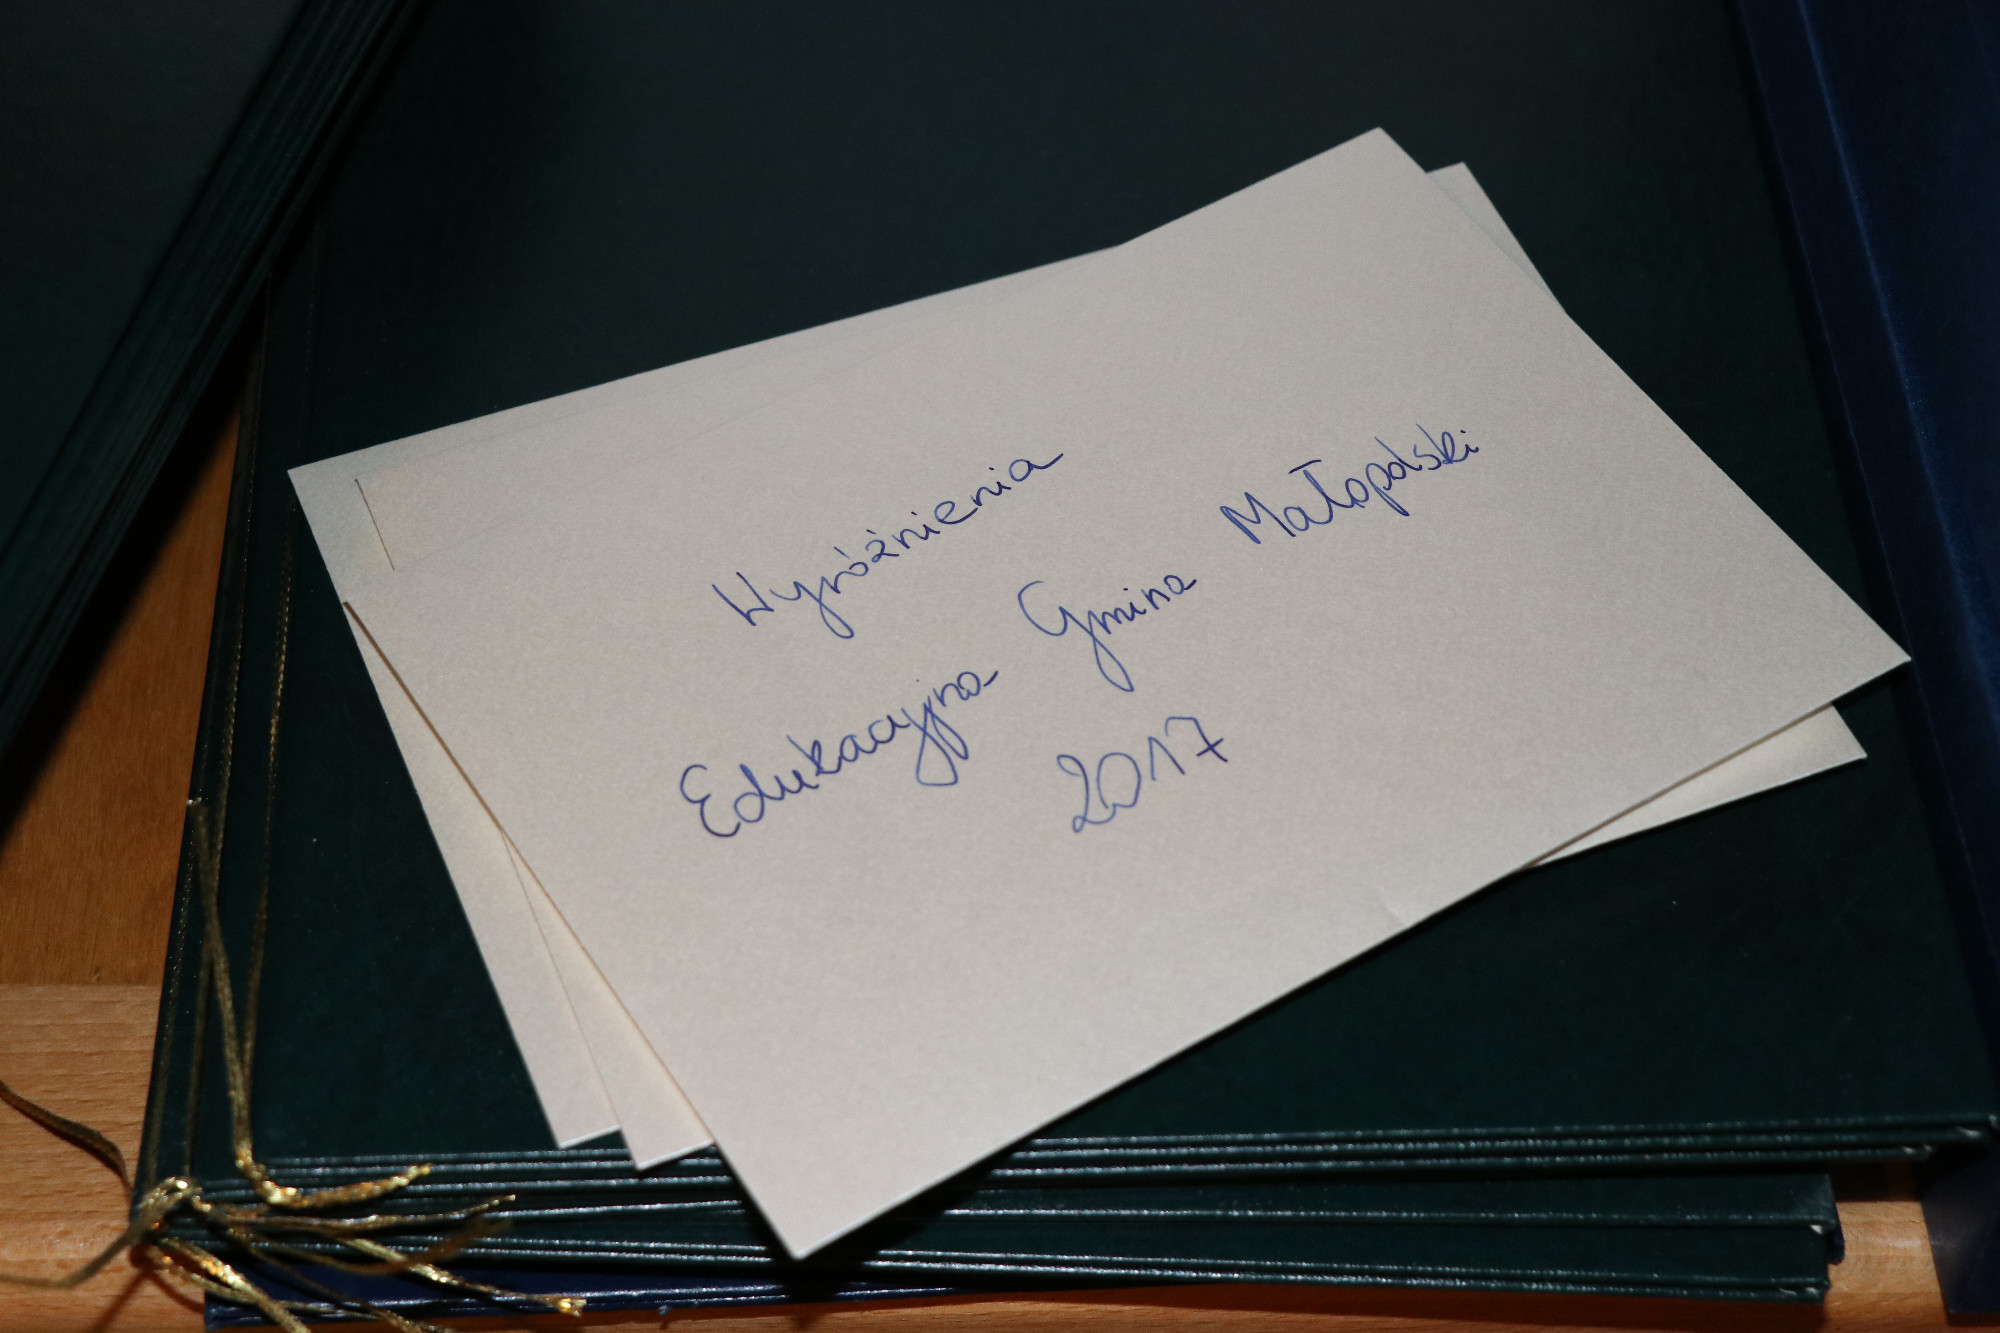 Wyróżnienia
Edukacyjna Gmina Małopolski
2017